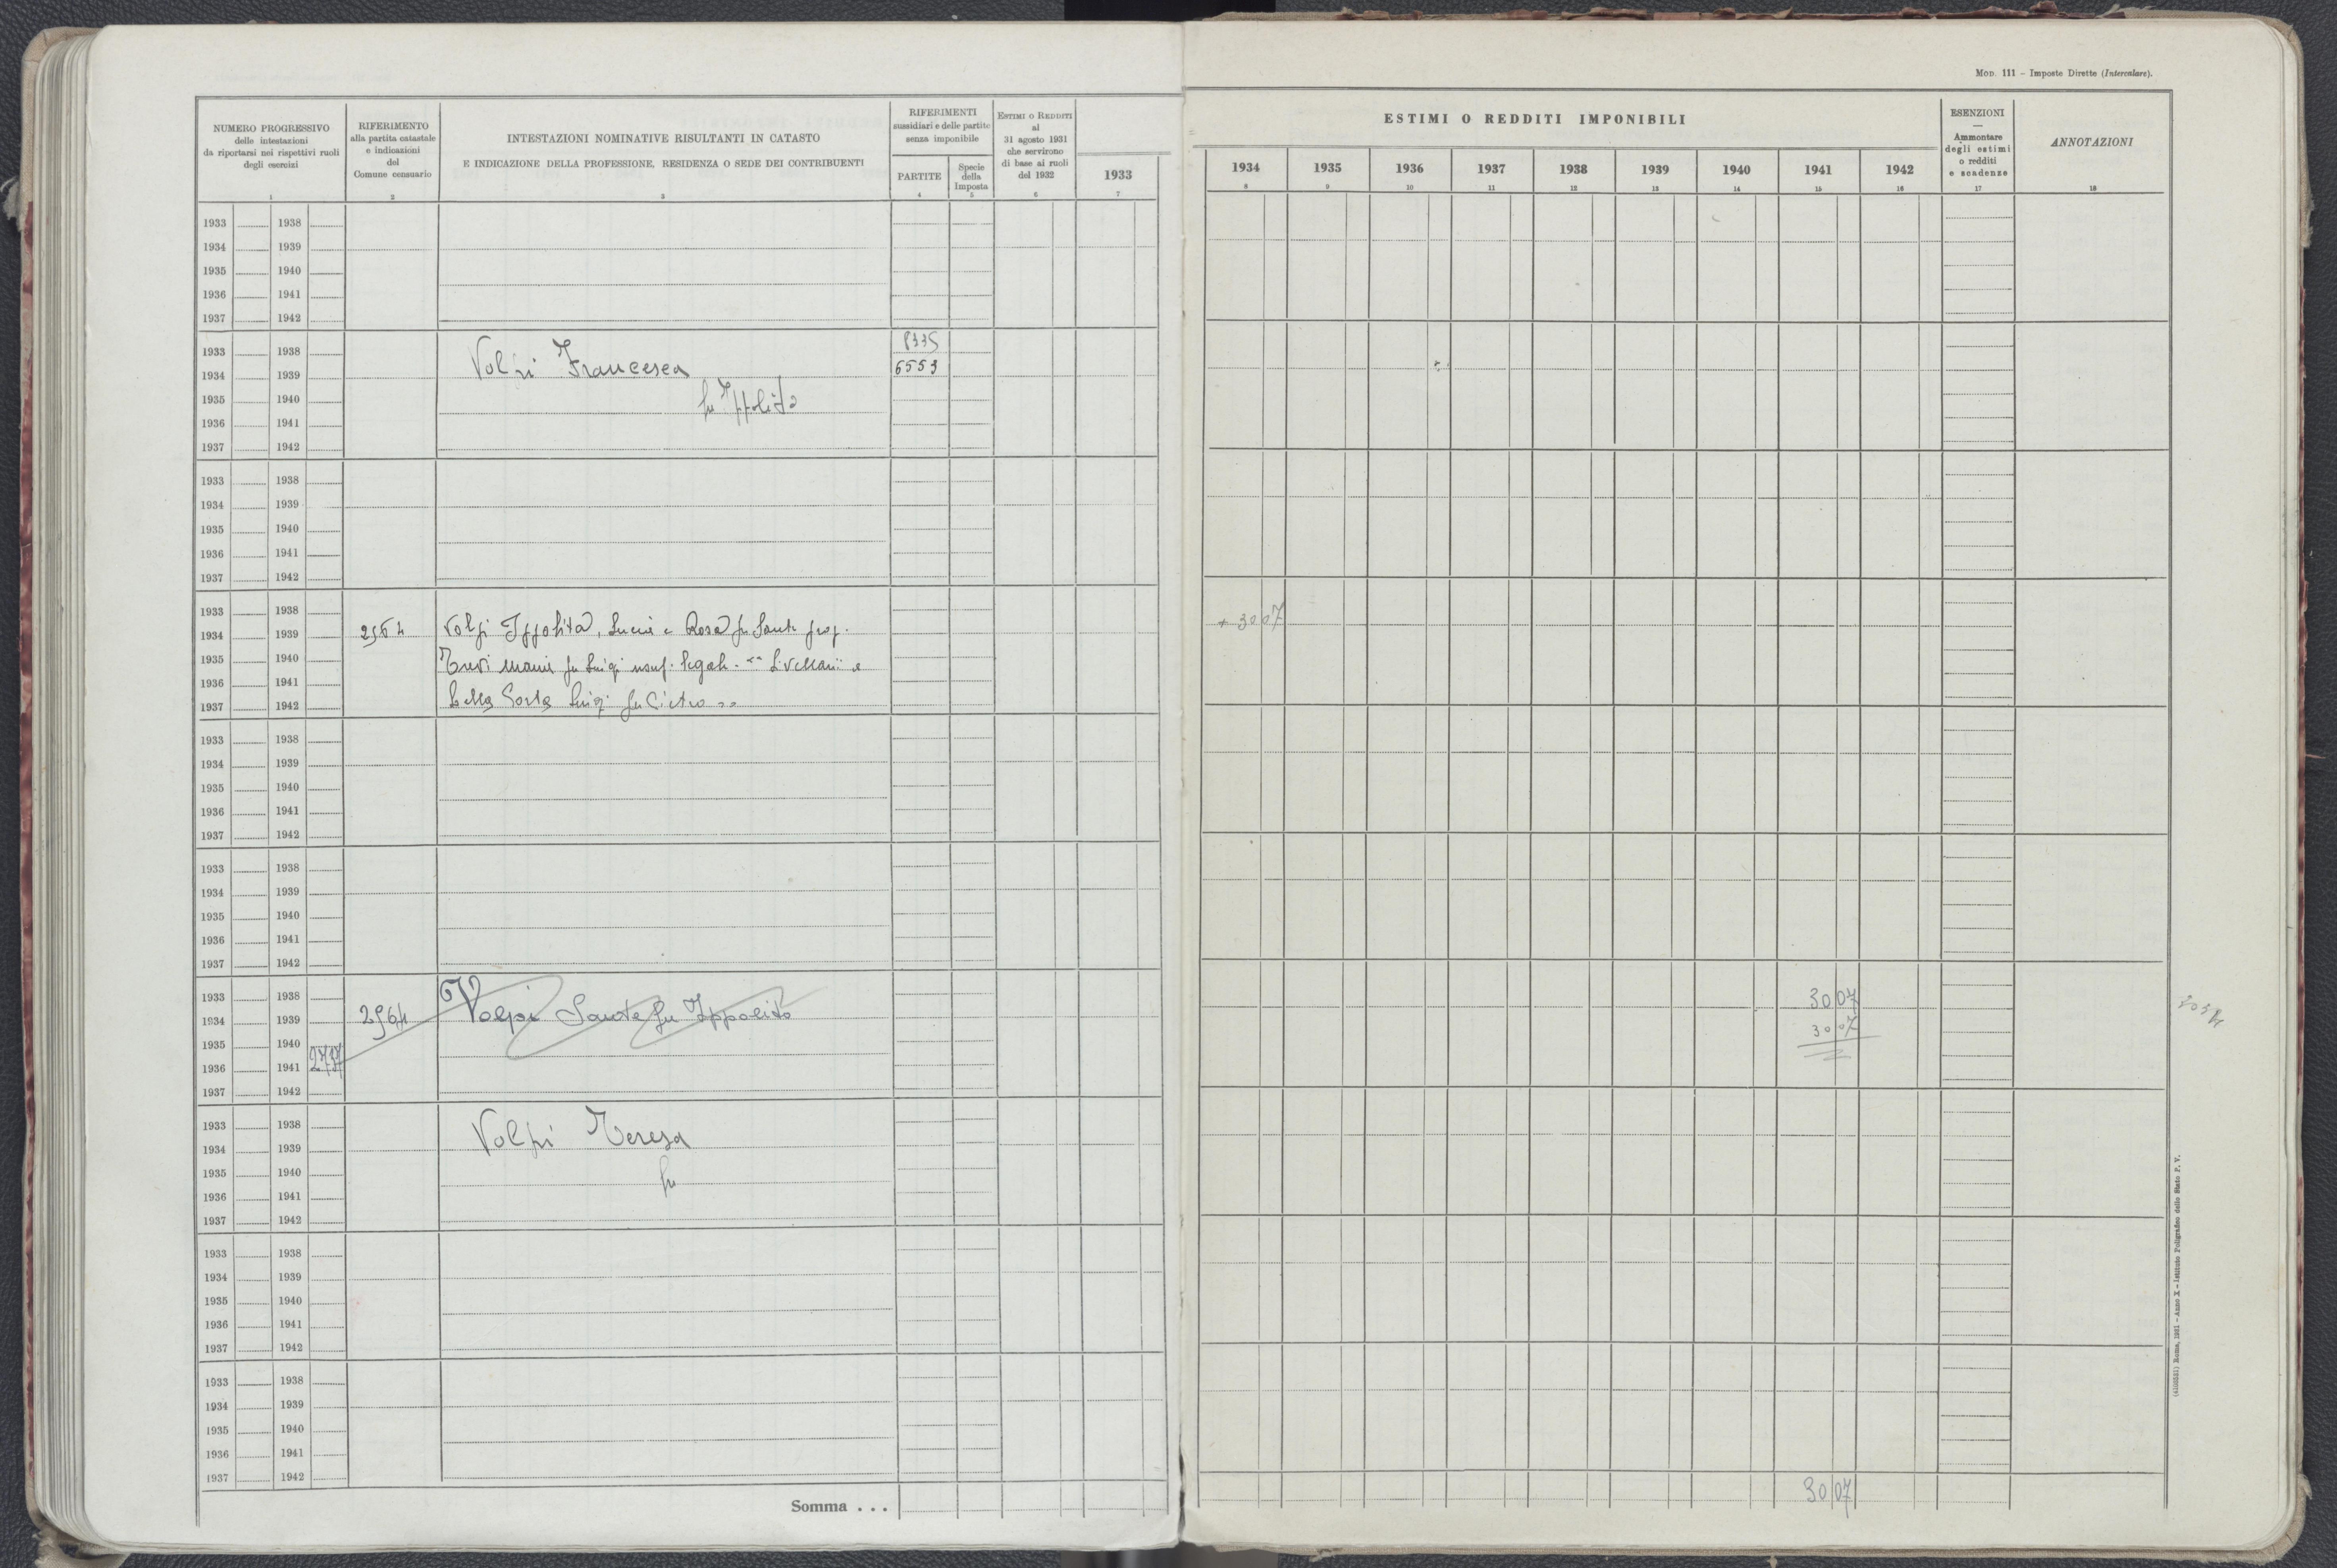 MOD. 111 – Imposte Dirette (Intercalare).
NUMERO PROGRESSIVO
delle intestazioni
da riportarsi nei rispettivi ruoli
degli esercizi
1
RIFERIMENTO
alla partita catastale
e indicazioni
del
Comune censuario
2
INTESTAZIONI NOMINATIVE RISULTANTI IN CATASTO
E INDICAZIONE DELLA PROFESSIONE, RESIDENZA O SEDE DEI CONTRIBUENTI
3
RIFERIMENTI
sussidiari e delle partite
senza imponibile
PARTITE
4
Specie
della
Imposta
5
ESTIMI O REDDITI
al
31 agosto 1931
che servirono
di base ai ruoli
del 1932
6
1933
7
ESTIMI O REDDITI IMPONIBILI
1934 1935 1936 1937 1938 1939 1940 1941 1942
8 9 10 11 12 13 14 15 16
ESENZIONI
—
Ammontare
degli estimi
o redditi
e scadenze
17
ANNOTAZIONI
18
1933 1938
1934 1939
1935 1940
1936 1941
1937 1942
8335
1933 1938
1934 1939 Volpi Francesca 6553
1935 1940 fu Ippolito
1936 1941
1937 1942
1933 1938
1934 1939
1935 1940
1936 1941
1937 1942
1933 1938
1934 1939 2964 Volpi Ippolita, Lucia e Rosa fu Sante prop. + 3007
1935 1940 fu Luigi usuf. legale Livellarii a
1936 1941
1937 1942 Della Porta Luigi fu Pietro
1933 1938
1934 1939
1935 1940
1936 1941
1937 1942
1933 1938
1934 1939
1935 1940
1936 1941
1937 1942
1933 1938 3007
1934 1939 2964 Volpi Sante fu Ippolito 3007
1935 1940
1936 1941
1937 1942
1933 1938
1934 1939 Volpi Teresa
1935 1940 fu
1936 1941
1937 1942
1933 1938
1934 1939
1935 1940
1936 1941
1937 1942
1933 1938
1934 1939
1935 1940
1936 1941
1937 1942
Somma . . . 3007
Roma, 1931 – Anno X – Istituto Poligrafico dello Stato P. V.